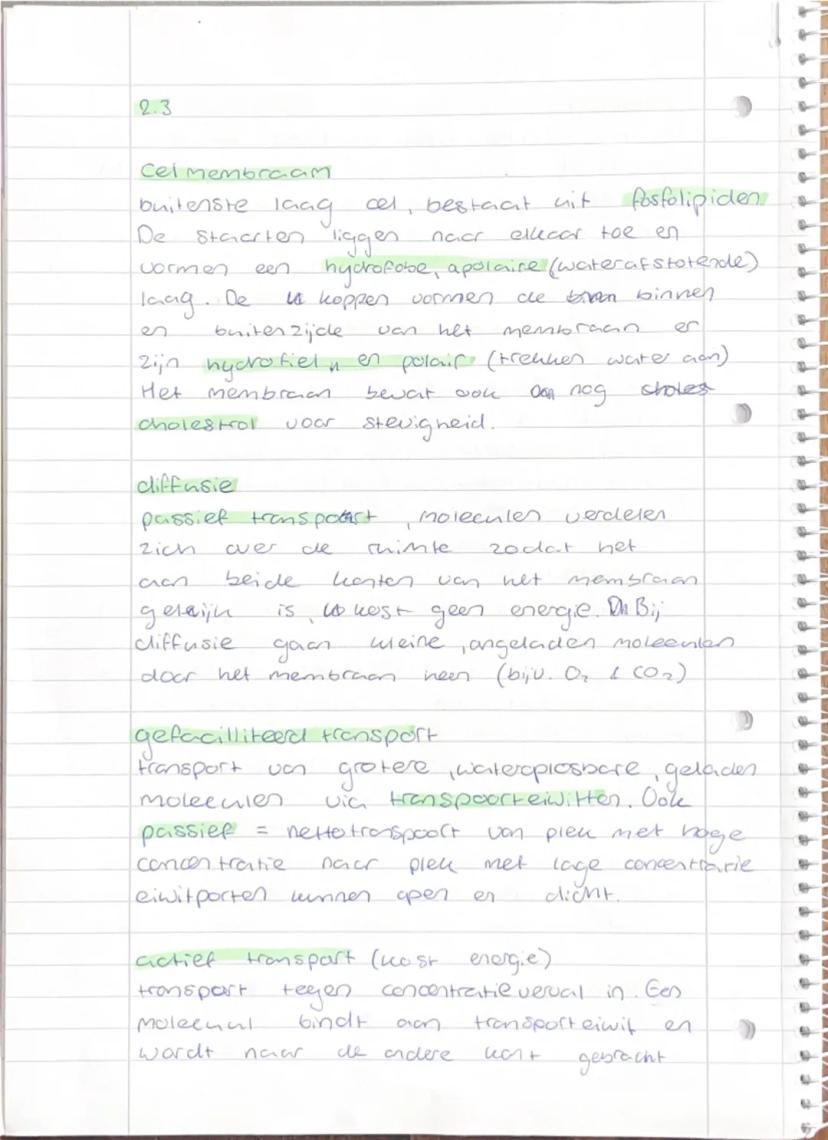 2.3
Celmembraam
buitenste laag cel, bestaat uit fosfolipiden
De staarten liggen naar elkaar toe en
vormen een hydrofobe, apolaire (waterafstotende)
laag. De koppen vormen de binnen
en buitenzijde van het membraan er
zijn hydrofiel en polair (trekken water aan)
Het membraan bevat ook nog
cholestrol voor stevigheid.
diffusie
passief transport, moleculen verdelen
zich over de ruimte zodat het
aan beide kanten van het membraan
gelijk is, kost geen energie. Bij
diffusie gaan kleine, ongeladen moleculen
door het membraan heen (bijv. O₂ & CO₂)
gefacilliteerd transport
transport van grotere, wateroplosbare, geladen
moleculen via transpoorteiwitten. Ook
passief = nettotranspoort van plek met hoge
concentratie naar plek met lage concentratie
eiwitporten kunnen open en dicht.
actief transport (kost energie)
transport tegen concentratieverval in. Een
molecuul bindt aan transporteiwit en
wordt naar de andere kant gebracht